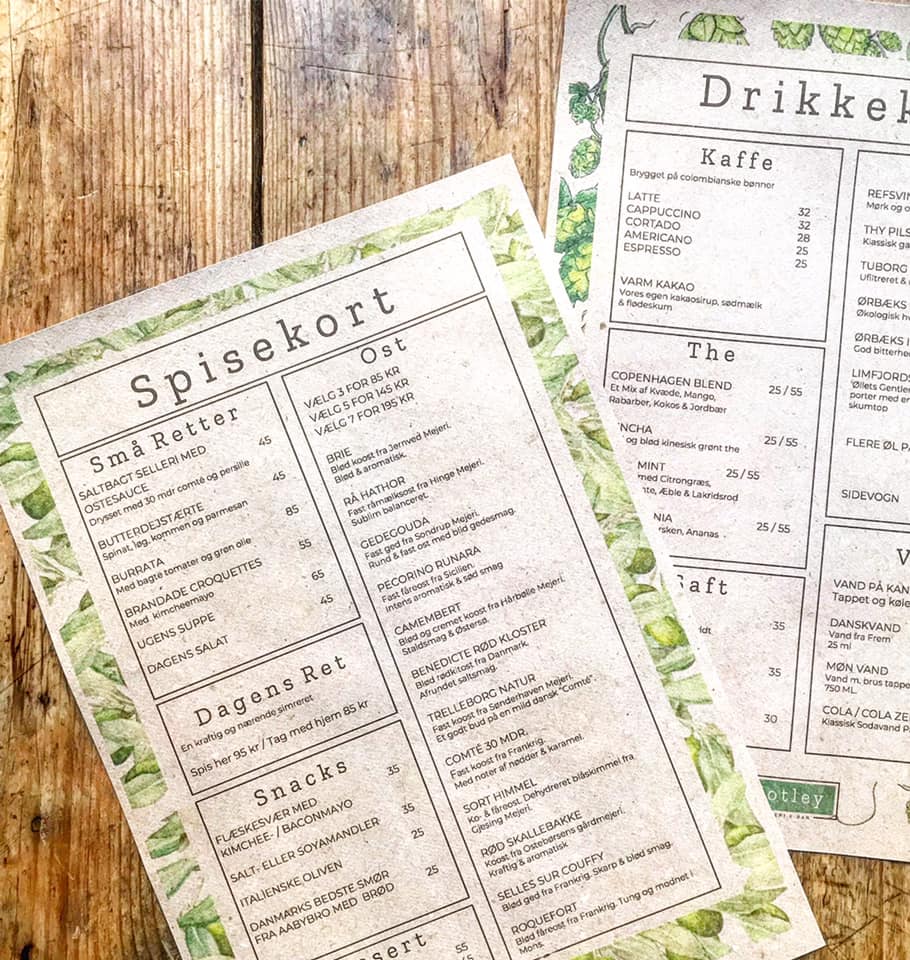 Spisekort
Små Retter
SALTBAGT SELLERI MED 45
OSTESAUCE
Drysset med 30 mdr comté og persille
BUTTERDEJSTÆRTE 45
Spinat, løg, kommen og parmesan
BURRATA 85
Med bagte tomater og grøn olie
BRANDADE CROQUETTES 55
Med kimcheemayo
UGENS SUPPE 65
DAGENS SALAT 45
Dagens Ret
En kraftig og nærende simreret
Spis her 95 kr / Tag med hjem 85 kr
Snacks
FLÆSKESVÆR MED 35
KIMCHEE- / BACONMAYO
SALT- ELLER SOYAMANDLER 35
ITALIENSKE OLIVEN 25
DANMARKS BEDSTE SMØR 25
FRA AABYBRO MED BRØD
sert
55
Ost
VÆLG 3 FOR 85 KR
VÆLG 5 FOR 145 KR
VÆLG 7 FOR 195 KR
BRIE
Blød koost fra Jernved Mejeri.
Blød & aromatisk.
RÅ HATHOR
Fast råmælksost fra Hinge Mejeri.
Sublim balanceret.
GEDEGOUDA
Fast ged fra Søndrup Mejeri.
Rund & fast ost med blid gedesmag.
PECORINO RUNARA
Fast fåreost fra Sicilien.
Intens aromatisk & sød smag
CAMEMBERT
Blød og cremet koost fra Hårbølle Mejeri.
Staldsmag & Østersø.
BENEDICTE RØD KLOSTER
Blød rødkitost fra Danmark.
Afrundet saltsmag.
TRELLEBORG NATUR
Fast koost fra Sønderhaven Mejeri.
Et godt bud på en mild dansk "Comté".
COMTÉ 30 MDR.
Fast koost fra Frankrig.
Med noter af nødder & karamel.
SORT HIMMEL
Ko- & fåreost. Dehydreret blåskimmel fra
Gjesing Mejeri.
RØD SKALLEBAKKE
Koost fra Ostebørsens gårdmejeri.
Kraftig & aromatisk
SELLES SUR COUFFY
Blød ged fra Frankrig. Skarp & blød smag.
ROQUEFORT
Blød fåreost fra Frankrig. Tung og modnet i
Mons.
Drikkek
Kaffe
Brygget på colombianske bønner
LATTE 32
CAPPUCCINO 32
CORTADO 28
AMERICANO 25
ESPRESSO 25
VARM KAKAO
Vores egen kakaosirup, sødmælk
& flødeskum
The
COPENHAGEN BLEND 25 / 55
Et Mix af Kvæde, Mango,
Rabarber, Kokos & Jordbær
NCHA 25 / 55
og blød kinesisk grønt the
MINT 25 / 55
med Citrongræs,
te, Æble & Lakridsrod
NIA 25 / 55
rsken, Ananas
Saft
35
ldt
35
30
REFSVIN
Mørk og o
THY PILS
Klassisk ga
TUBORG
Ufiltreret &
ØRBÆKS
Økologisk h
ØRBÆKS I
God bitterhe
LIMFJORDS
'Øllets Gentle
porter med er
skumtop
FLERE ØL PÅ
SIDEVOGN
V
VAND PÅ KAN
Tappet og køle
DANSKVAND
Vand fra Frem
25 ml
MØN VAND
Vand m. brus tappe
750 ML
COLA / COLA ZE
Klassisk Sodavand
otley